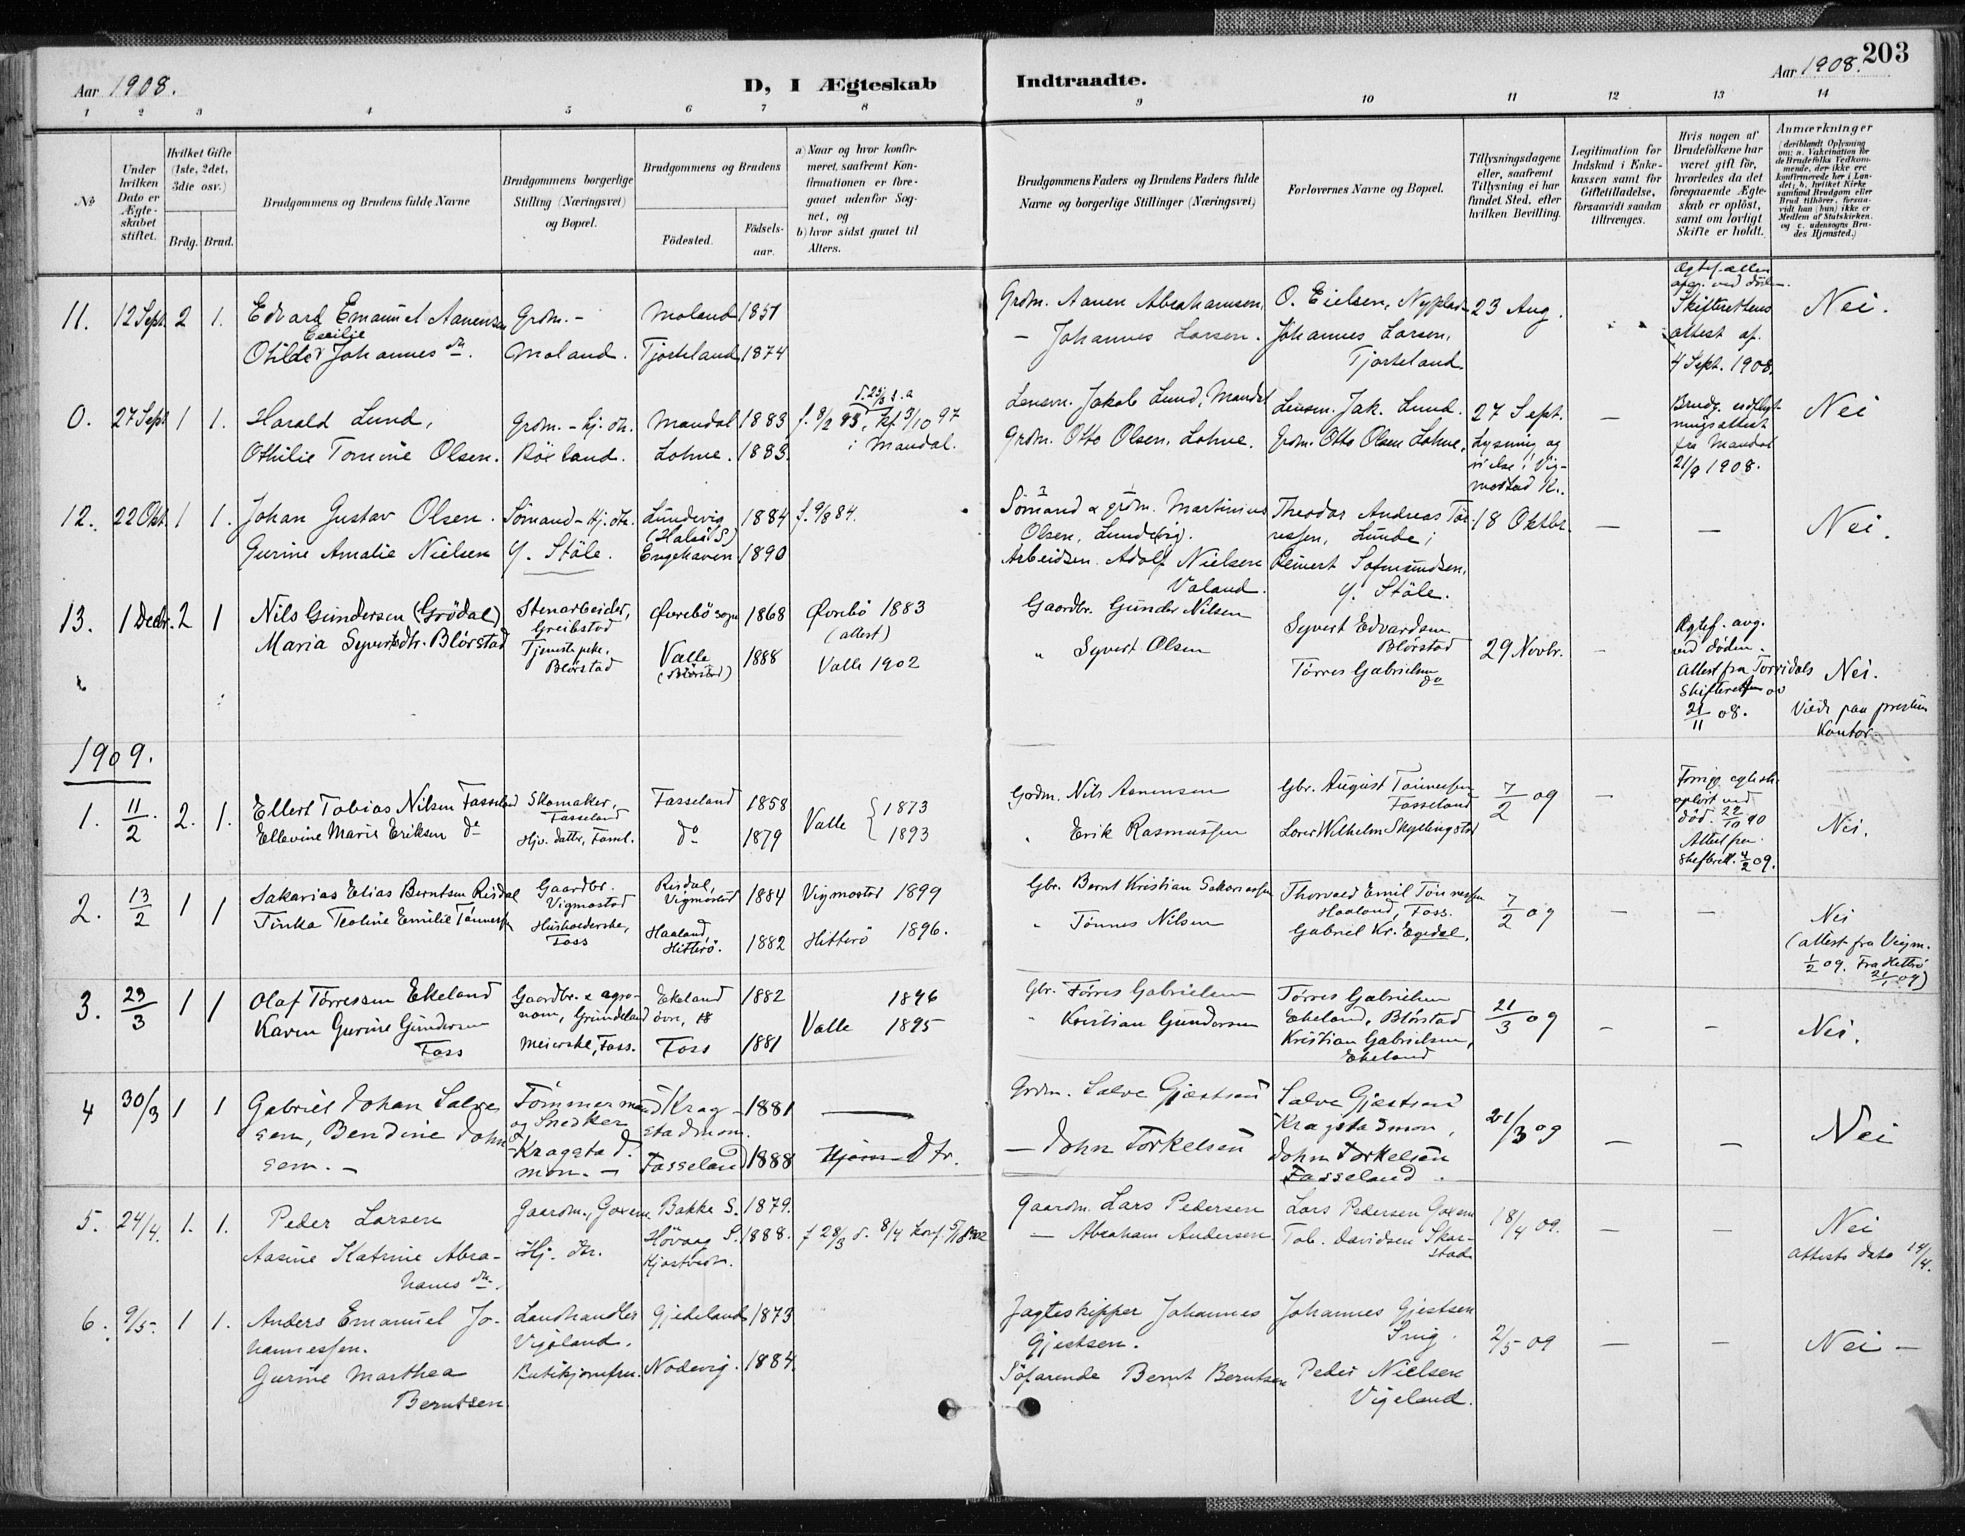 203
Aar 1908.
D, I Ægteskab
Indtraadte.
Aar 1908.
1 2 3 4 5 6 7 8 9 10 11 12 13 14
No
Under hvilken Dato er Ægteskabet stiftet.
Hvilket Gifte (1ste, 2det, 3die osv.)
Brdg. Brud.
Brudgommens og Brudens fulde Navne
Brudgommens borgerlige Stilling (Næringsvei) og Bopæl.
Brudgommens og Brudens
Födested.
Födselsaar.
a) Naar og hvor konfirmeret, saafremt Konfirmationen er foregaaet udenfor Sognet, og
b) hvor sidst gaaet til Alters.
Brudgommens Faders og Brudens Faders fulde Navne og borgerlige Stillinger (Næringsvei)
Forlovernes Navne og Bopæl.
Tillysningsdagene eller, saafremt Tillysning ei har fundet Sted, efter hvilken Bevilling.
Legitimation for Indskud i Enkekassen samt for Giftetilladelse, forsaavidt saadan tiltrænges.
Hvis nogen af Brudefolkene har været gift för, hvorledes da det foregaaende Ægteskab er oplöst, samt om lovligt Skifte er holdt.
Anmærkninger
(deriblandt Oplysning om: a. Vakcination for de Brudefolks Vedkommende, der ikke ere konfirmerede her i Landet; b. hvilket Kirkesamfund Brudgom eller Brud tilhörer, forsaavidt han (hun) ikke er Medlem af Statskirken, og c. udensogns Brudes Hjemsted.)
11. 12 Sept. 2 1. Edvard Emanuel Aanensen Grdm. - Moland 1851
Cecilie
Otilde Johannes dtr. Moland. Tjorteland 1874
Grdm. Aanen Abrahamsen. O. Eielsen, Nyplads 23 Aug.
- Johannes Larsen. Johannes Larsen, Tjorteland.
Skifterettens attest af. 4 Sept. 1908.
Nei.
0. 27 Sept 1 1. Harald Lund, Grdm. - hj. dtr. Mandal 1883 f. 8/2 83, kf 3/10 97
Othilie Tomine Olsen. Röiland. Lohne. 1883. i Mandal.
Lensm. Jakob Lund, Mandal Lensm. Jak. Lund. 27 Sept. —
Grdm. Otto Olsen, Lohne. Grdm. Otto Olsen Lohne. Lysning og vielse i Vigmostad K.
fra Mandal 21/9 1908.
Nei
12. 22 Okt. 1 1. Johan Gustav Olsen. Sömand - Hj. dtr. Lundevig 1884 f. 9/8 84.
(Halsaa S)
Gurine Amalie Nielsen Y. Stöle. Engehaven 1890
Sömand & grdm. Martinius Olsen, Lundevig. Theodor Andreas Törresen, Lunde; 18 Oktbr. — —
Arbeidsm. Adolf Nielsen Valand. Reinert Sofmundsen, Y. Stöle.
Nei.
13. 1 Decbr. 2 1 Nils Gundersen (Grödal) Stenarbeider, Greibstad Øvrebö sogn 1868 Øvrebö 1883
(attest)
Maria Syvertsdtr. Blörstad Tjenestepike. Blörstad Valle (Blörstad) 1888 Valle 1902
Gaardbr. Gunder Nilsen Syvert Edvardsen Blörstad 29 Novbr. —
" Syvert Olsen Törres Gabrielsen do
Ægtef. avg. ved döden.
Attest fra Torridals
21/11 08.
Nei.
Viede paa prestens Kontor
1909.
1. 11/2. 2. 1. Ellert Tobias Nilsen Fasseland Skomaker, Fasseland Fasseland 1858 Valle { 1873
Ellevine Marie Eriksen do Hjv. dattr, Fassl. do 1879 1893
Grdm. Nils Aanensen Gbr. August Tönnessen Fasseland 7/2 09 —
" Erik Rasmussen Lars Wilhelm Skyllingstad
Nei.
2. 13/2 1 1 Sakarias Elias Berntsen Risdal Gaardbr. Vigmostad Risdal, Vigmostad 1884 Vigmostad 1899
Tinka Teoline Emilie Tönnessen Husholderske, Foss Haaland, Hitterö. 1882 Hitterö 1896.
Gbr. Bernt Kristian Sakariassen Thorvald Emil Tönnessen Haaland, Foss. 7/2 09 — —
" Tönnes Nilsen Gabriel Kr. Egedal.
Nei
(attest fra Vigm. 1/2 09. Fra Hitterö 21/1 09)
3. 23/3 1 1 Olaf Törressen Ekeland Gaardbr. & agronom, Grundeland Ekeland övre, 1882 1896
Karen Gurine Gundersen Foss Meierske, Foss. Foss 1881 Valle 1895
Gbr. Törres Gabrielsen Törres Gabrielsen Ekeland, Blörstad 21/3 09 — —
" Kristian Gundersen Kristian Gabrielsen, Ekeland
Nei.
4 30/3 1 1 Gabriel Johan Salvesen, Bendine Johnsen. - Tömmermand og Snedker Kragstadmon. - Kragstadmon. 1881 —
Fasseland 1888 Hjem Dtr.
Grdm. Salve Gjæstsen Salve Gjæstsen Kragstadmon, 21/3 09 — —
— John Torkelsen John Torkelsen Fasseland.
Nei
5. 24/4. 1. 1. Peder Larsen Gaardm., Goxem Bakke S. 1879.
Aasine Katrine Abrahams dtr. Hj. dtr. Hövaag S. 1888. f 28/3 d. 8/4 konf. 5/10 1902
Gaardm. Lars Pedersen Lars Pedersen Goxem 18/4 09. — —
— Abraham Andersen Tob. Davidsen Skarstad
Nei
attests dato 14/4.
6. 9/5. 1 1. Anders Emanuel Johannessen. Landhandler Vigeland. Gjideland 1873
Gurine Marthea Berntsen Butikjomfru. Nodevig. 1884
Jagteskipper Johannes Gjestsen. Johannes Gjestsen Snig. 2/5 09 — —
Söfarende Bernt Berntsen Peder Nielsen Vigeland.
Nei —